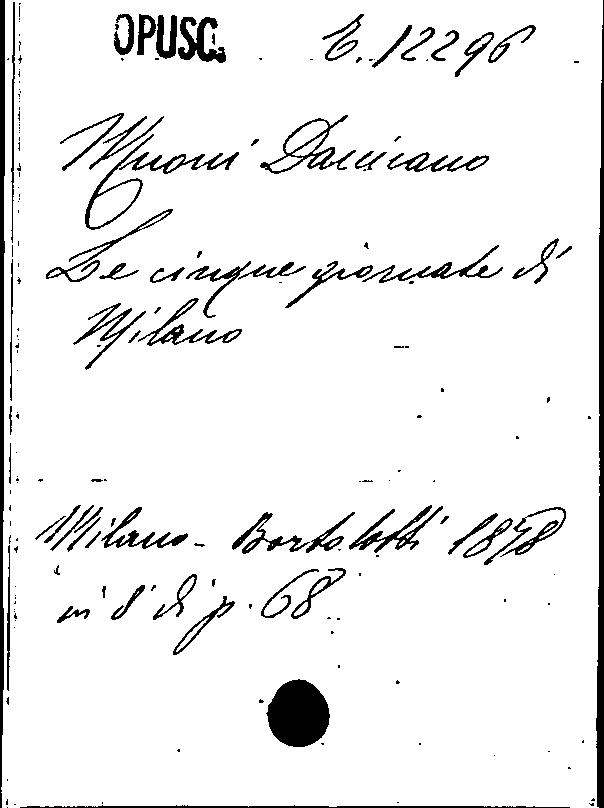 OPUSC. E. 12296
Muoni Damiano
Le cinque giornate di
Milano
Milano - Bortolotti 1878
in 8° di p. 68